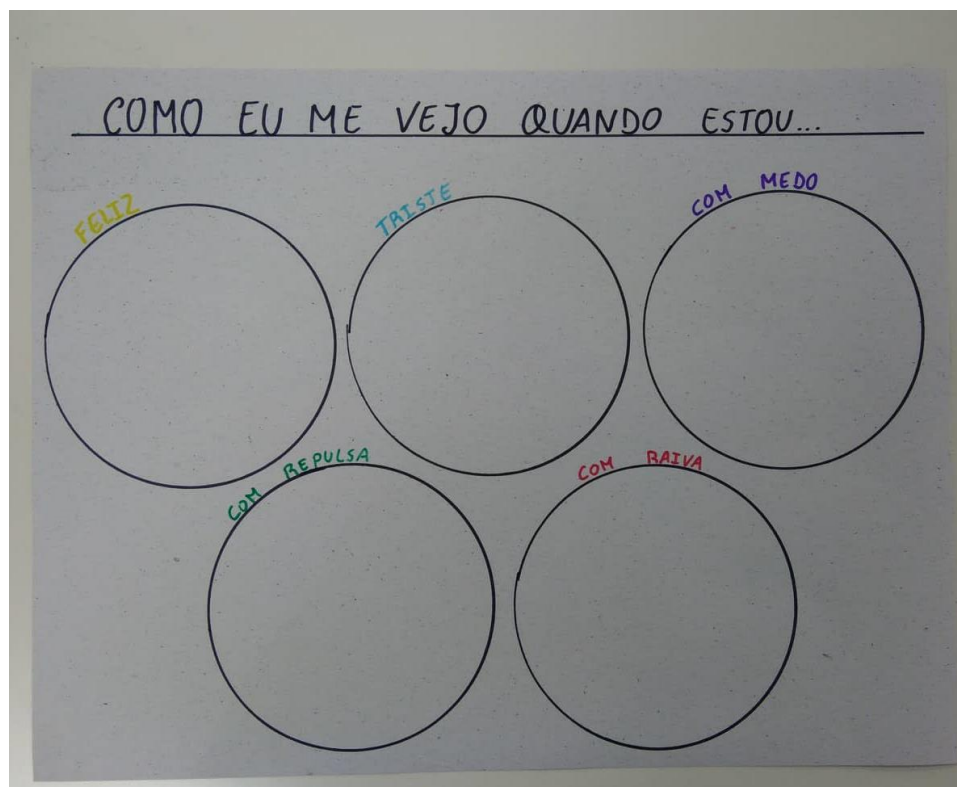 COMO EU ME VEJO QUANDO ESTOU...
FELIZ
TRISTE
COM MEDO
COM REPULSA
COM RAIVA